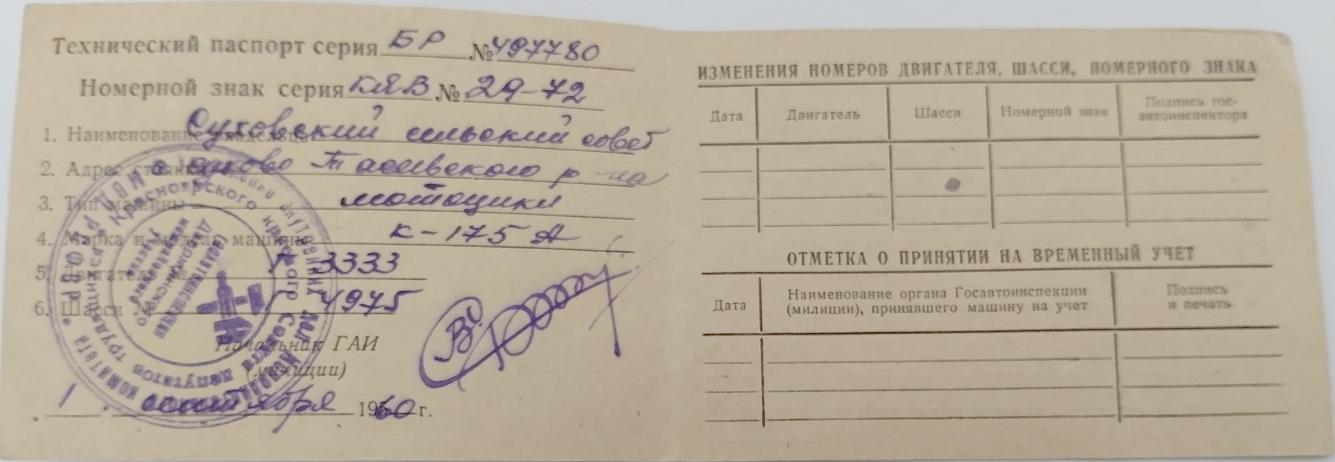 Технический паспорт серия БР № 497780
Номерной знак серия КЯВ № 29-72
1. Наименование владельца Суховский сельский совет
2. Адрес стоянки Сухово Тасеевского р-на
3. Тип машины мотоцикл
4. Марка и модель машины К-175 А
5. Двигатель № Г 3333
6. Шасси № Г 4975
Начальник ГАИ
(милиции)
1 сентября 1960 г.
ИЗМЕНЕНИЯ НОМЕРОВ ДВИГАТЕЛЯ, ШАССИ, НОМЕРНОГО ЗНАКА
Дата Двигатель Шасси Номерной знак Подпись гос-
автоинспектора
ОТМЕТКА О ПРИНЯТИИ НА ВРЕМЕННЫЙ УЧЕТ
Дата Наименование органа Госавтоинспекции Подпись
(милиции), принявшего машину на учет и печать
Красноярского краевого Совета депутатов трудящихся